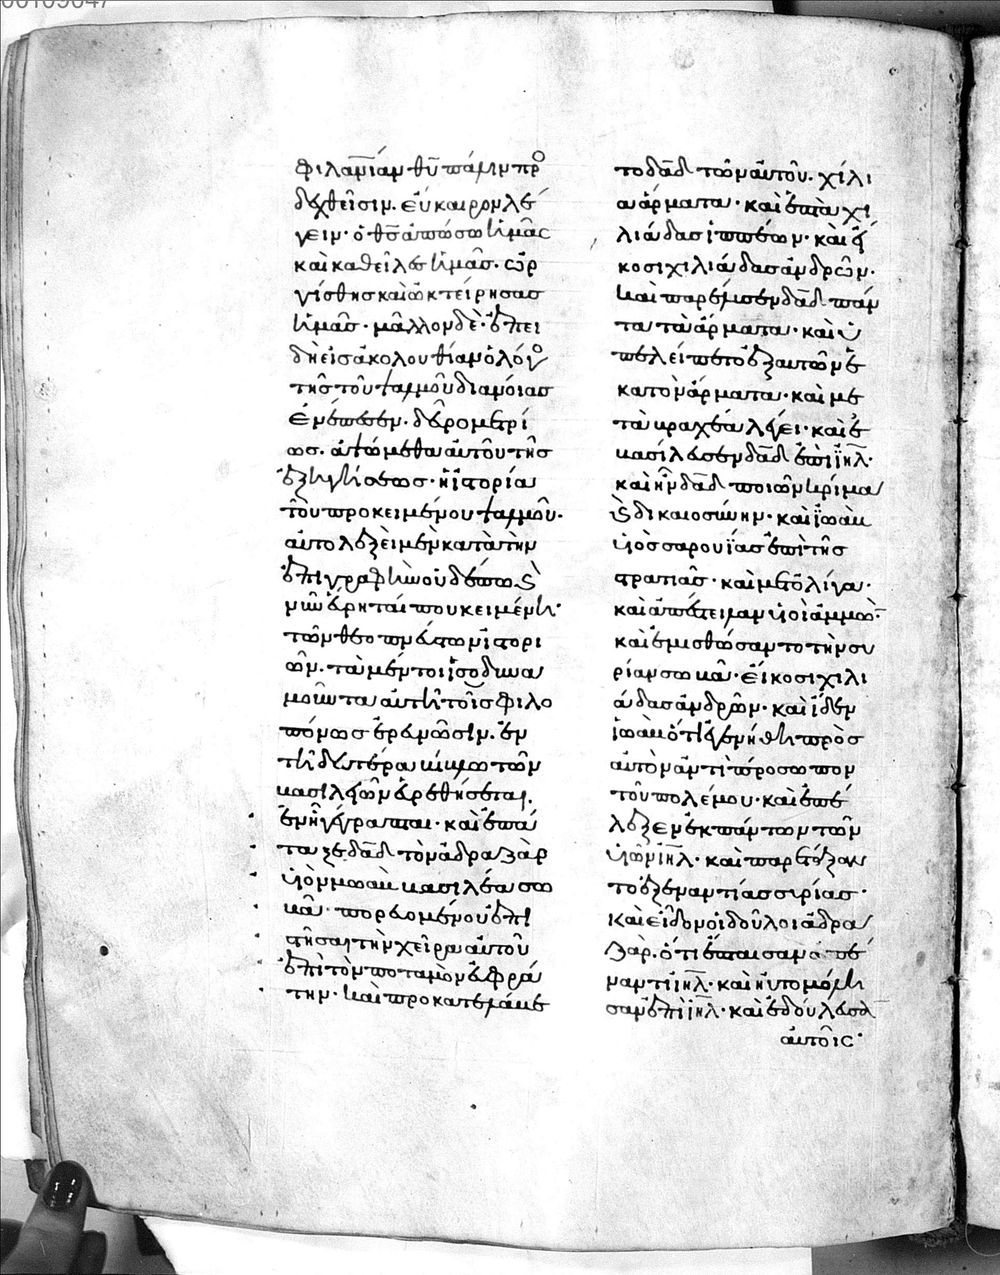 φιλανιαν θῦ πάλιν πρ
δεχθεῖσιν. εὔκαιρον λέ
γειν· ὁ θς ἀπώσω ἡμᾶς
καὶ καθεῖλες ἡμᾶς. ὠρ
γίσθης καὶ ὠκτείρησας
ἡμᾶς· μᾶλλον δὲ· ἐπει
δὴ εἰς ἀκολουθίαν ὅλον
τῆς τοῦ ψαλμοῦ διανοίας
ἐνέπεσεν. δεῦρο μετρί
ως. ἁψώμεθα αὐτοῦ τῆς
ἐξηγήσεως· ἡ ἱστορία
τοῦ προκειμένου ψαλμοῦ.
αὐτολεξεὶ μὲν κατὰ τὴν
ἐπιγραφὴν οὐδέπω
νῦν εὕρηταί που κειμένη·
τῶν θεοπνεύστων ἱστορι
ῶν. τὰ μέντοι ἰσοδυνα
μοῦντα αὐτῆ τοῖς φιλο
πόνως ἐρευνῶσιν. ἐν
τῆ δευτέρα τῶν
βασιλειῶν εὑρεθήσεται.
ἐν ἧ γέγραπται· καὶ ἐπά
ταξε δαδ τὸν ἀδρααζὰρ
υἱὸν ῥαὰβ βασιλέα σω
βᾶ· πορευομένου ἐπι
στῆσαι τὴν χεῖρα αὐτοῦ
ἐπὶ τὸν ποταμὸν εὐφρά
την· καὶ προκατελάβε
το δαδ τῶν αὐτοῦ. χίλι
α ἅρματα· καὶ ἑπτὰ χι
λιάδας ἱππέων· καὶ εἰ
κοσι χιλιάδας ἀνδρῶν·
καὶ παρέλυσεν δαδ πάν
τα τὰ ἅρματα· καὶ ὑ
πελείπετο ἐξ αὐτῶν ἑ
κατὸν ἅρματα· καὶ με
τὰ βραχέα λέγει· καὶ ἐ
βασίλευσεν δαδ ἐπὶ ιηλ·
καὶ ἦν δαδ ποιῶν κρίμα
δικαιοσύνην· καὶ ἰωαβ
υἱὸς σαρουΐας ἐπὶ τῆς
στρατιᾶς· καὶ μετ' ὀλίγα·
καὶ ἀπέστειλαν υἱοὶ ἀμμών·
καὶ ἐμισθώσαντο τὴν συ
ρίαν σωβᾶ· εἴκοσι χιλι
άδας ἀνδρῶν· καὶ ἶδεν
ἰωαβ ὅτι ἐγενήθη πρὸς
αὐτὸν ἀντιπρόσωπον
τοῦ πολέμου· καὶ ἐπέ
λεξεν ἐκ πάντων τῶν
υἱῶν ιηλ· καὶ παρετάξαν
το ἐξεναντίας συρίας·
καὶ εἶδον οἱ δοῦλοι ἀδρα
ζαρ. ὅτι ἔπταισαν
ναντι ιηλ· καὶ ηὐτομόλη
σαν ἐπὶ ιηλ· καὶ ἐδούλευσαν
αὐτοῖς·